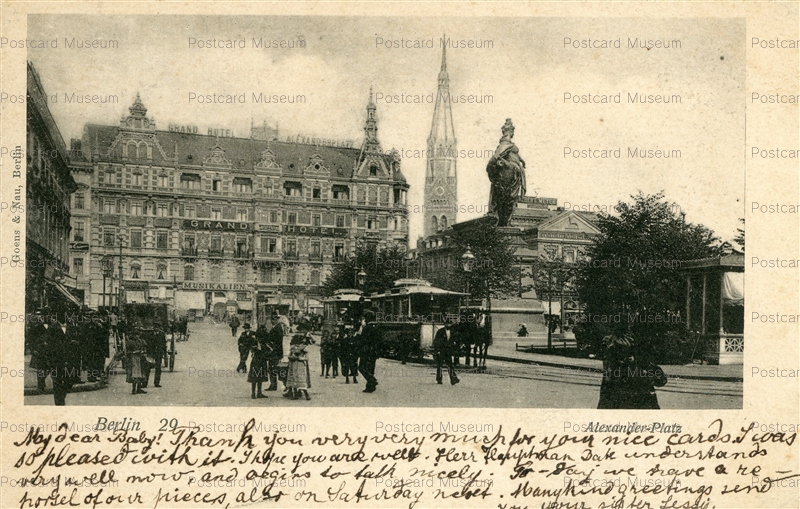 Postcard Museum Postcard Museum Postcard Museum Postcard Museum Postcard Museum
GRAND HOTEL ALEXANDERPLATZ
GRAND HOTEL
MUSIKALIEN
Goens & Nau, Berlin
Berlin 29
Alexander-Platz
My dear Baby! Thank you very very much for your nice cards. I was
so pleased with it. I hope you are well. Herr Hauptman Dak understands
very well now, and begins to talk nicely. To-day we have a re-
horsel of our pieces, also on Saturday next. Many kind greetings send
you your sister Lessy.